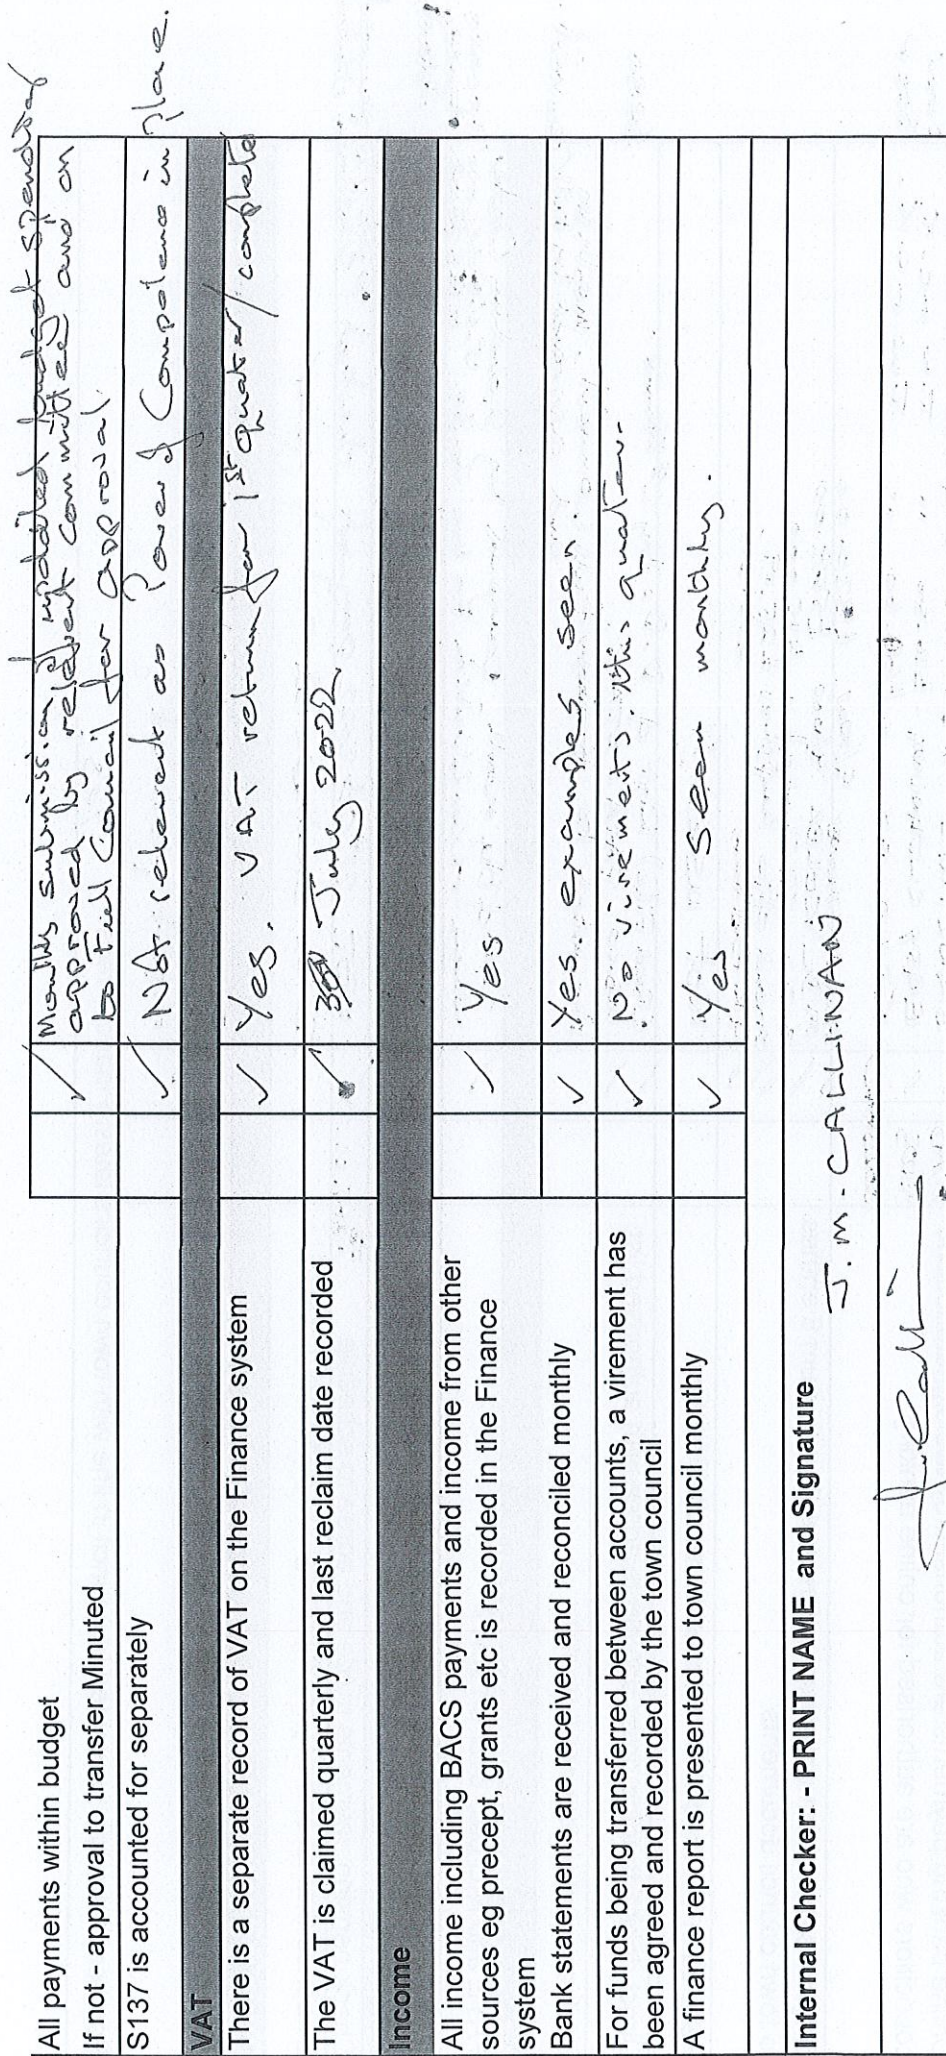 All payments within budget
If not - approval to transfer Minuted
✓ Monthly submission of updated budget spending
approved by relevant committee and on
to Full Council for approval.
S137 is accounted for separately ✓ Not relevant as Power of Competence in place.
VAT
There is a separate record of VAT on the Finance system ✓ Yes. VAT return for 1st quater / complete
The VAT is claimed quarterly and last reclaim date recorded ✓ July 2022
Income
All income including BACS payments and income from other
sources eg precept, grants etc is recorded in the Finance
system ✓ Yes
Bank statements are received and reconciled monthly ✓ Yes. examples seen.
For funds being transferred between accounts, a virement has
been agreed and recorded by the town council ✓ No virements this quater.
A finance report is presented to town council monthly ✓ Yes. Seen monthly.
Internal Checker: - PRINT NAME and Signature
J. M. CALLINAN